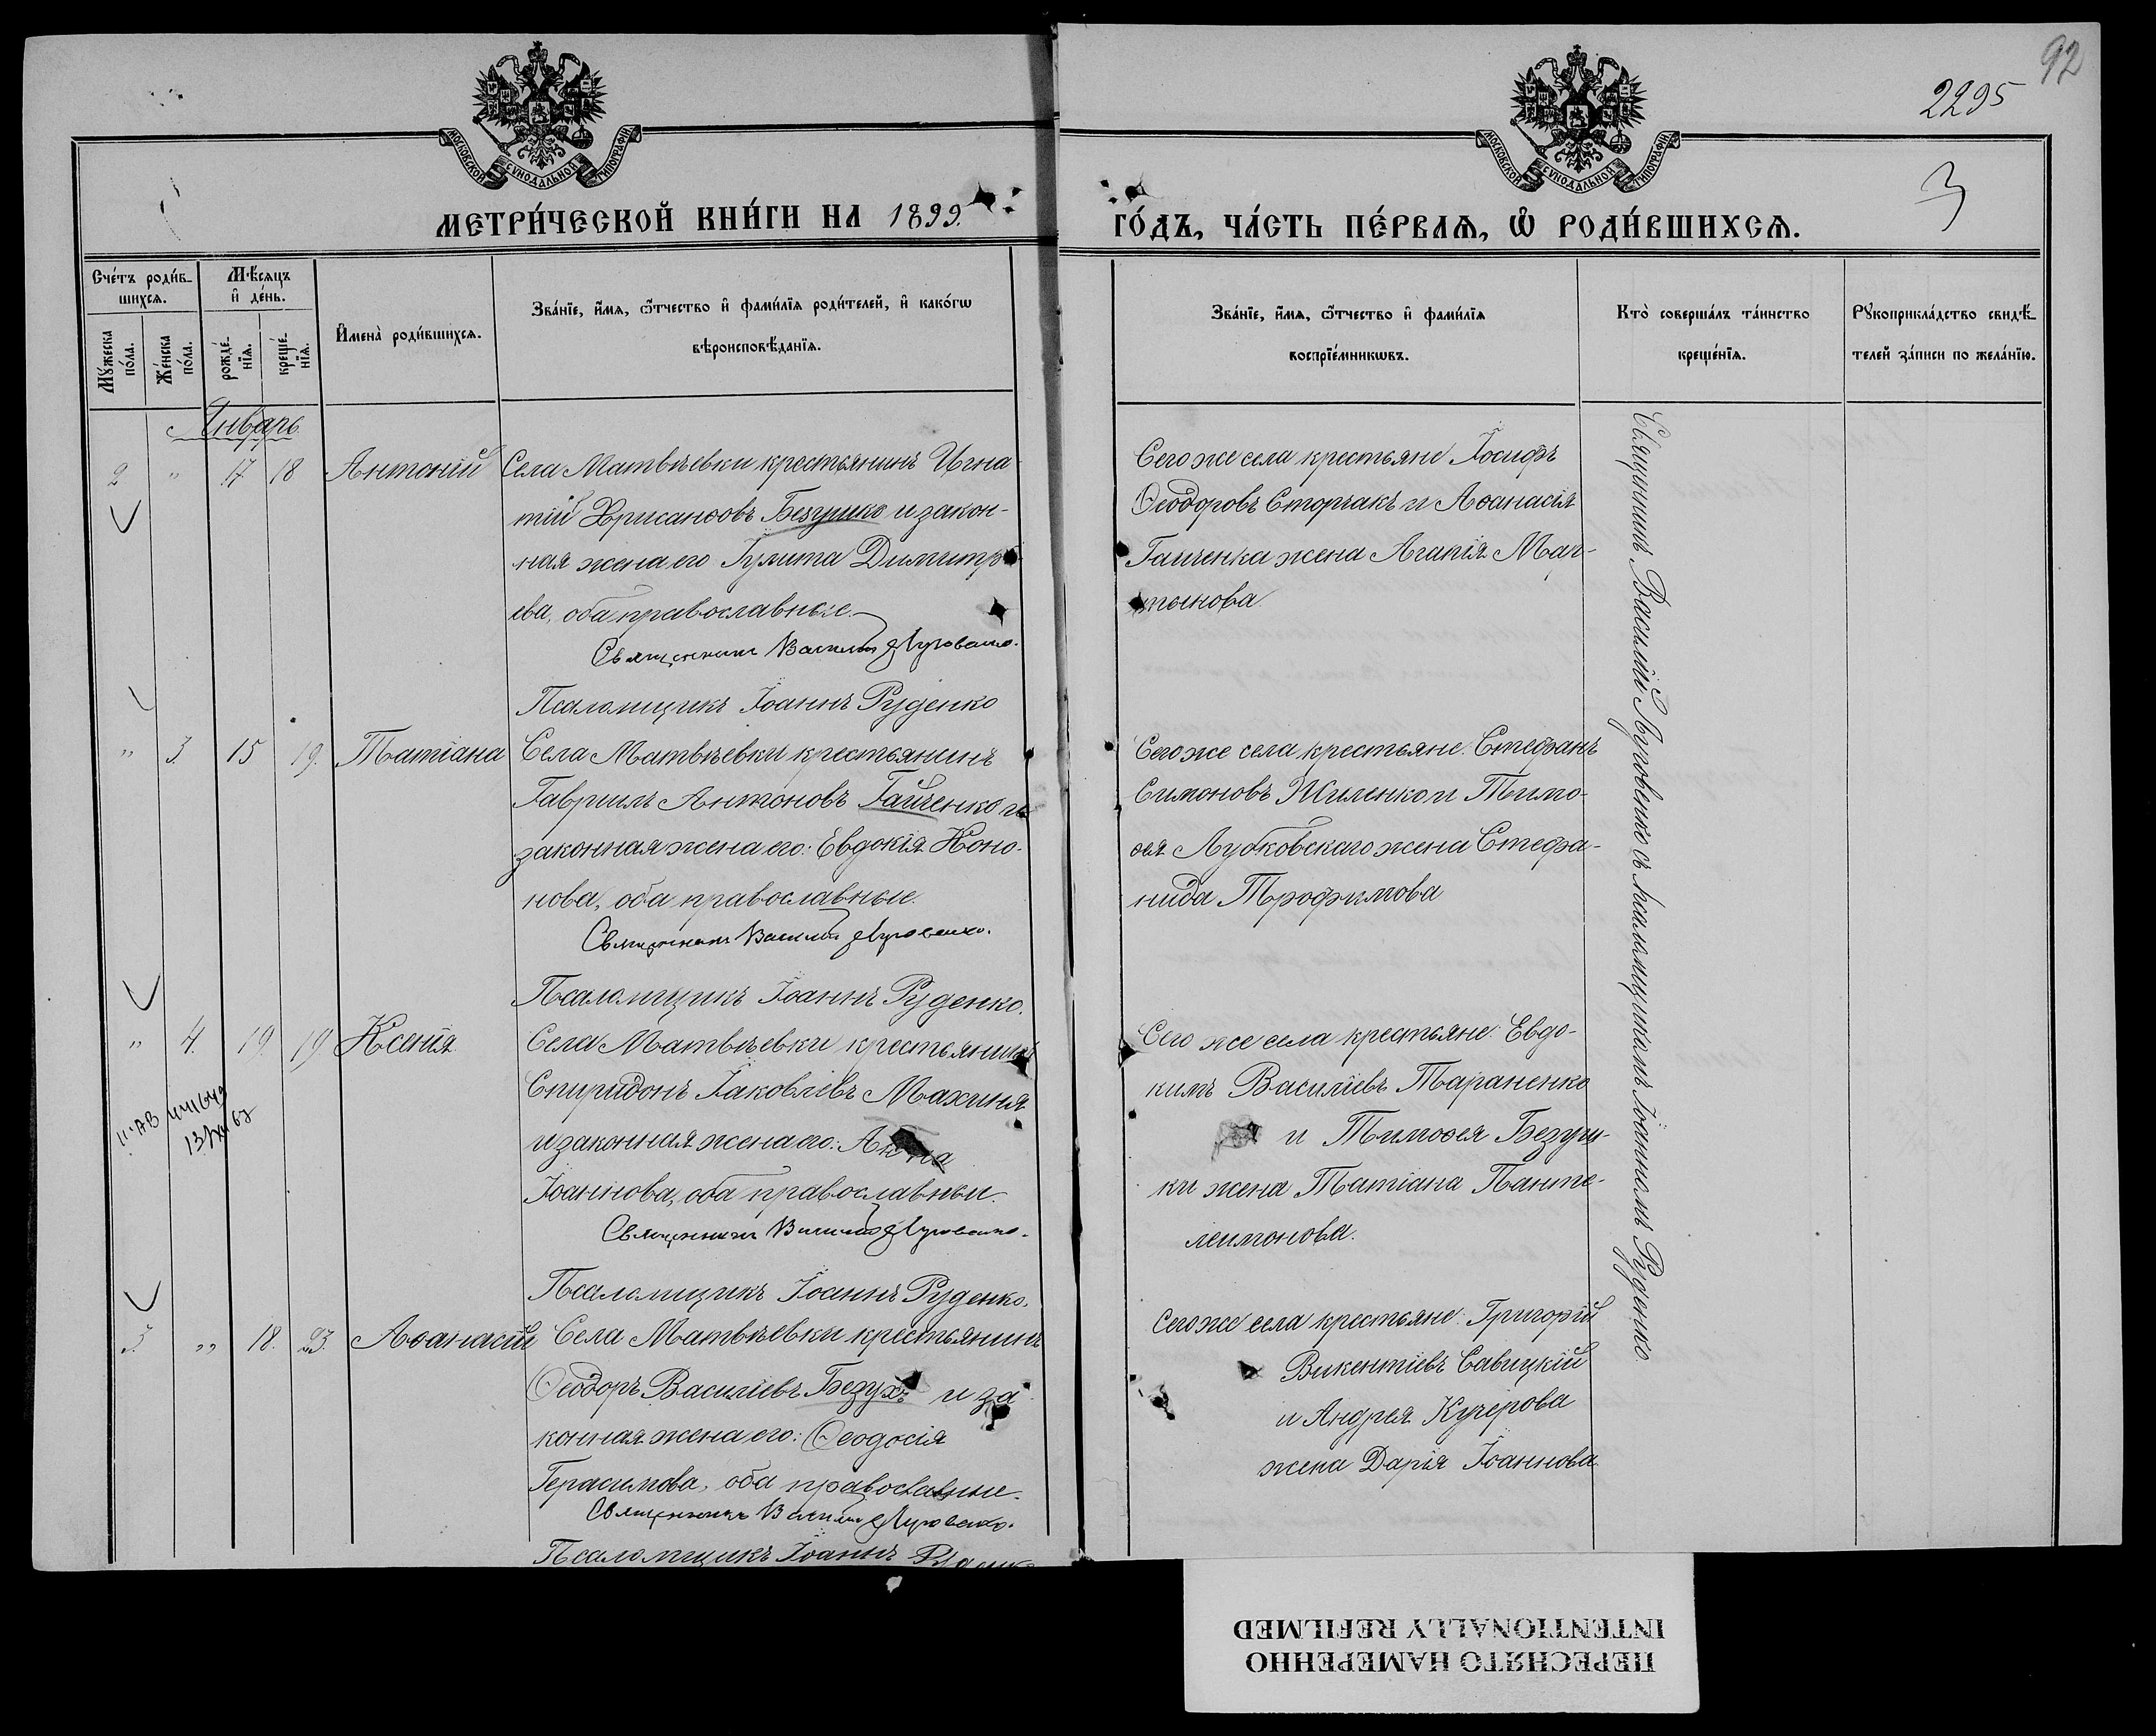 92
2295
3
МОСКОВСКОЙ СѴНОДАЛЬНОЙ ТИПОГРАФІИ
МОСКОВСКОЙ СѴНОДАЛЬНОЙ ТИПОГРАФІИ
МЕТРИ́ЧЕСКОЙ КНИ́ГИ НА 1899.
ГО́ДЪ, ЧА́СТЬ ПЕ́РВАѦ, Ѽ РОДИ́ВШИХСѦ.
Сче́тъ роди́в-
шихсѧ.
Мѣ́сѧцъ
и҆ де́нь.
Мꙋ́жеска
по́ла.
Же́нска
по́ла.
рожде́-
нїѧ.
креще́-
нїѧ.
И҆мена̀ роди́вшихсѧ.
Зва́нїе, и҆́мѧ, ѻ҆́тчество и҆ фами́лїѧ роди́телей, и҆ како́гѡ
вѣроисповѣ́данїѧ.
Зва́нїе, и҆́мѧ, ѻ҆́тчество и҆ фами́лїѧ
воспрїе́мникѡвъ.
Кто̀ соверша́лъ та́инство
креще́нїѧ.
Рꙋкоприкла́дство свидѣ́-
телей за́писи по жела́нїю.
Январь
2 " 17 18 Антоній Села Матвѣевки крестьянинъ Игна-
тій Хрисанѳовъ Безушко и закон-
ная жена его Іулита Димитрі-
ева, оба православные.
Священникъ Василій Луговенко.
Псаломщикъ Іоаннъ Руденко
Сего же села крестьяне Іосифъ
Ѳеодоровъ Сторчакъ и Аѳанасія
Гайченка жена Агапія Мар-
тынова
" 3 15 19. Татіана Села Матвѣевки крестьянинъ
Гавріилъ Антоновъ Гайченко и
законная жена его: Евдокія Коно-
нова, оба православные.
Священникъ Василій Луговенко.
Псаломщикъ Іоаннъ Руденко.
Сего же села крестьяне: Стефанъ
Симоновъ Жиленко и Тимо-
ѳея Лубковскаго жена Стефа-
нида Трофимова
" 4. 19. 19 Ксенія Села Матвѣевки крестьянинъ
Спиридонъ Іаковлевъ Махиня
и законная жена его: Анна
Іоаннова, оба православные.
Священникъ Василій Луговенко.
Псаломщикъ Іоаннъ Руденко.
Сего же села крестьяне: Евдо-
кимъ Василіевъ Тараненко
и Тимоѳея Безуш-
ки жена Татіана Панте-
леимонова.
3. " 18. 23. Аѳанасій Села Матвѣевки крестьянинъ
Ѳеодоръ Василіевъ Безухъ и за-
конная жена его: Ѳеодосія
Герасимова, оба православные.
Священникъ Василій Луговенко.
Псаломщикъ Іоаннъ
Сего же села крестьяне: Григорій
Викентіевъ Савицкій
и Андрея Кучерова
жена Дарія Іоаннова
Священникъ Василій Луговенко съ псаломщикомъ Іоанномъ Руденко.
ПЕРЕСНЯТО НАМЕРЕННО
INTENTIONALLY REFILMED